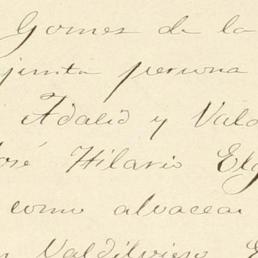 Gomez de la
junta persona
Adalid y Vald
José Hilario Elg
como alvaceas
Valdilvieso E